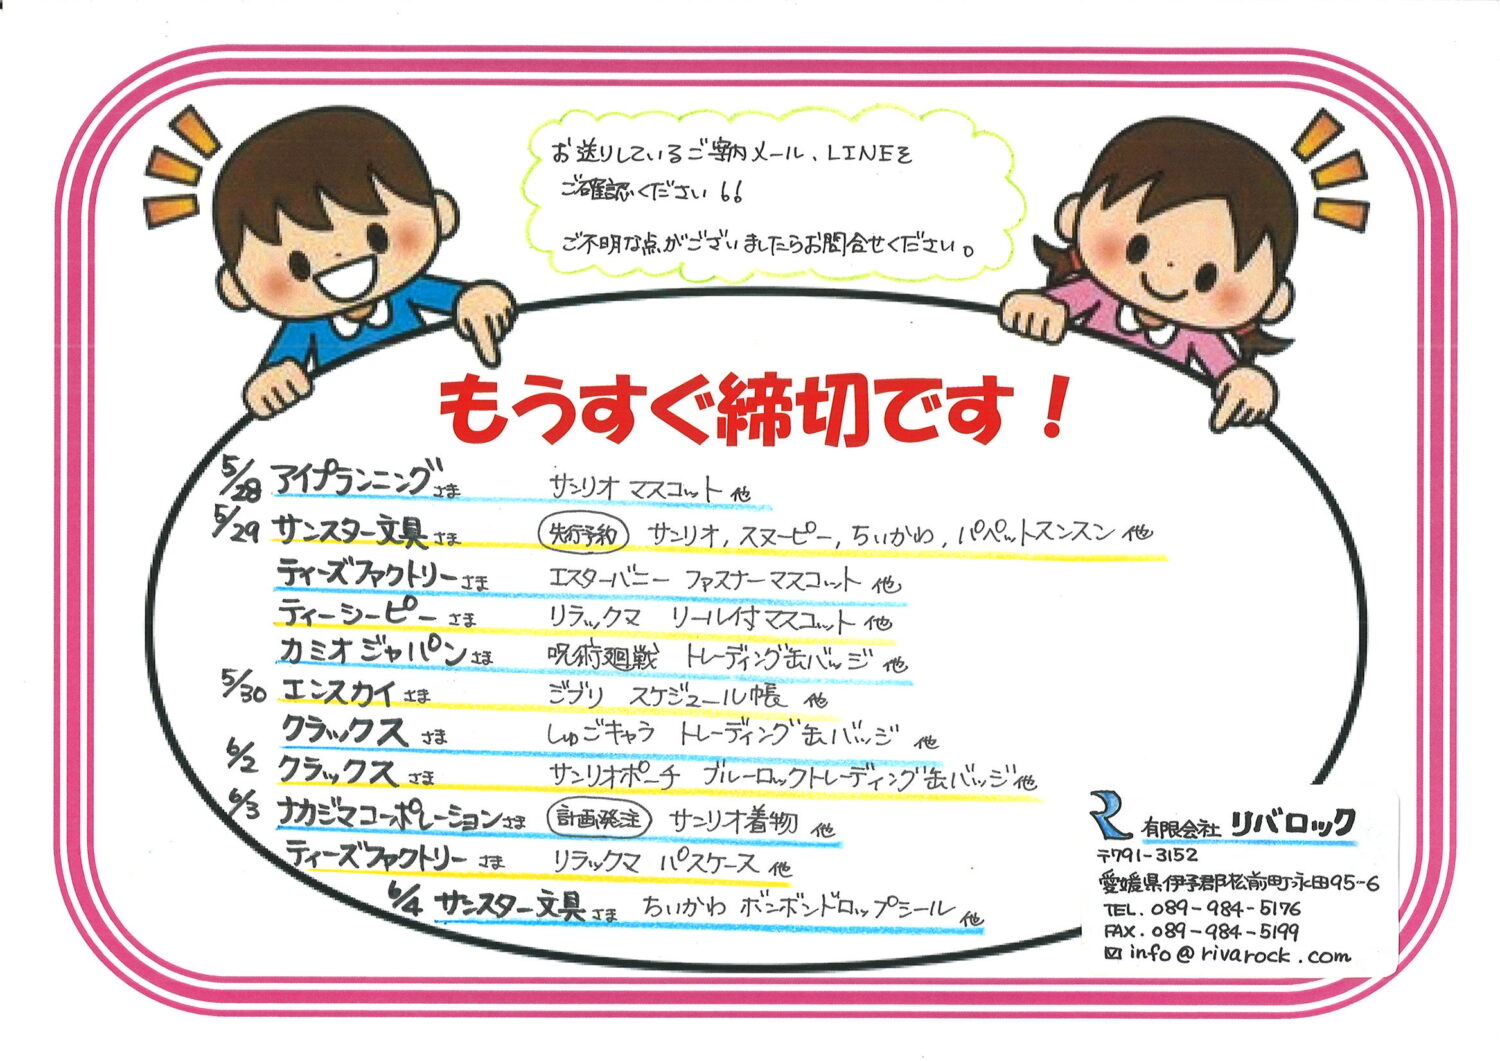 お送りしているご案内メール、LINEを
ご確認ください
ご不明な点がございましたらお問合せください。
もうすぐ締切です！
5/28 アイプランニングさま サンリオ マスコット 他
5/29 サンスター文具さま 先行予約 サンリオ, スヌーピー, ちいかわ, パペットスンスン 他
ティーズファクトリーさま エスターバニー ファスナーマスコット 他
ティーシーピーさま リラックマ リール付マスコット 他
カミオジャパンさま 呪術廻戦 トレーディング缶バッジ 他
5/30 エンスカイさま ジブリ スケジュール帳 他
クラックスさま しゅごキャラ トレーディング缶バッジ 他
6/2 クラックスさま サンリオポーチ ブルーロックトレーディング缶バッジ他
6/3 ナカジマコーポレーションさま 計画発注 サンリオ着物 他
ティーズファクトリーさま リラックマ パスケース 他
6/4 サンスター文具さま ちいかわ ボンボンドロップシール 他
有限会社 リバロック
〒791-3152
愛媛県伊予郡松前町永田95-6
TEL. 089-984-5176
FAX. 089-984-5199
info@rivarock.com